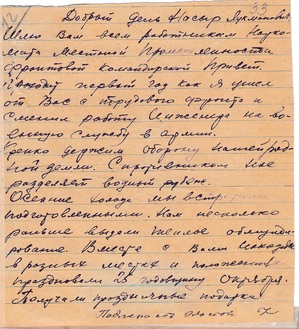 12
33
Добрый день Насыр Лукманович
Шлю Вам всем работникам Нарко-
мата Местной Промышленности
Фронтовой Командирский Привет.
Проходит первый год как я ушел
от Вас с трудового фронта и
сменил работу Инженера на во-
енную службу в армии.
Крепко держим оборону нашей род-
ной земли. С противником нас
разделяет водный рубеж.
Осенние холода мы встретили
подготовленными. Нам несколько
раньше выдали теплое обмунди-
рование. Вместе с Вами
в разных местах и положениях
праздновали 25 годовщину Октября.
Получили праздничные подарки